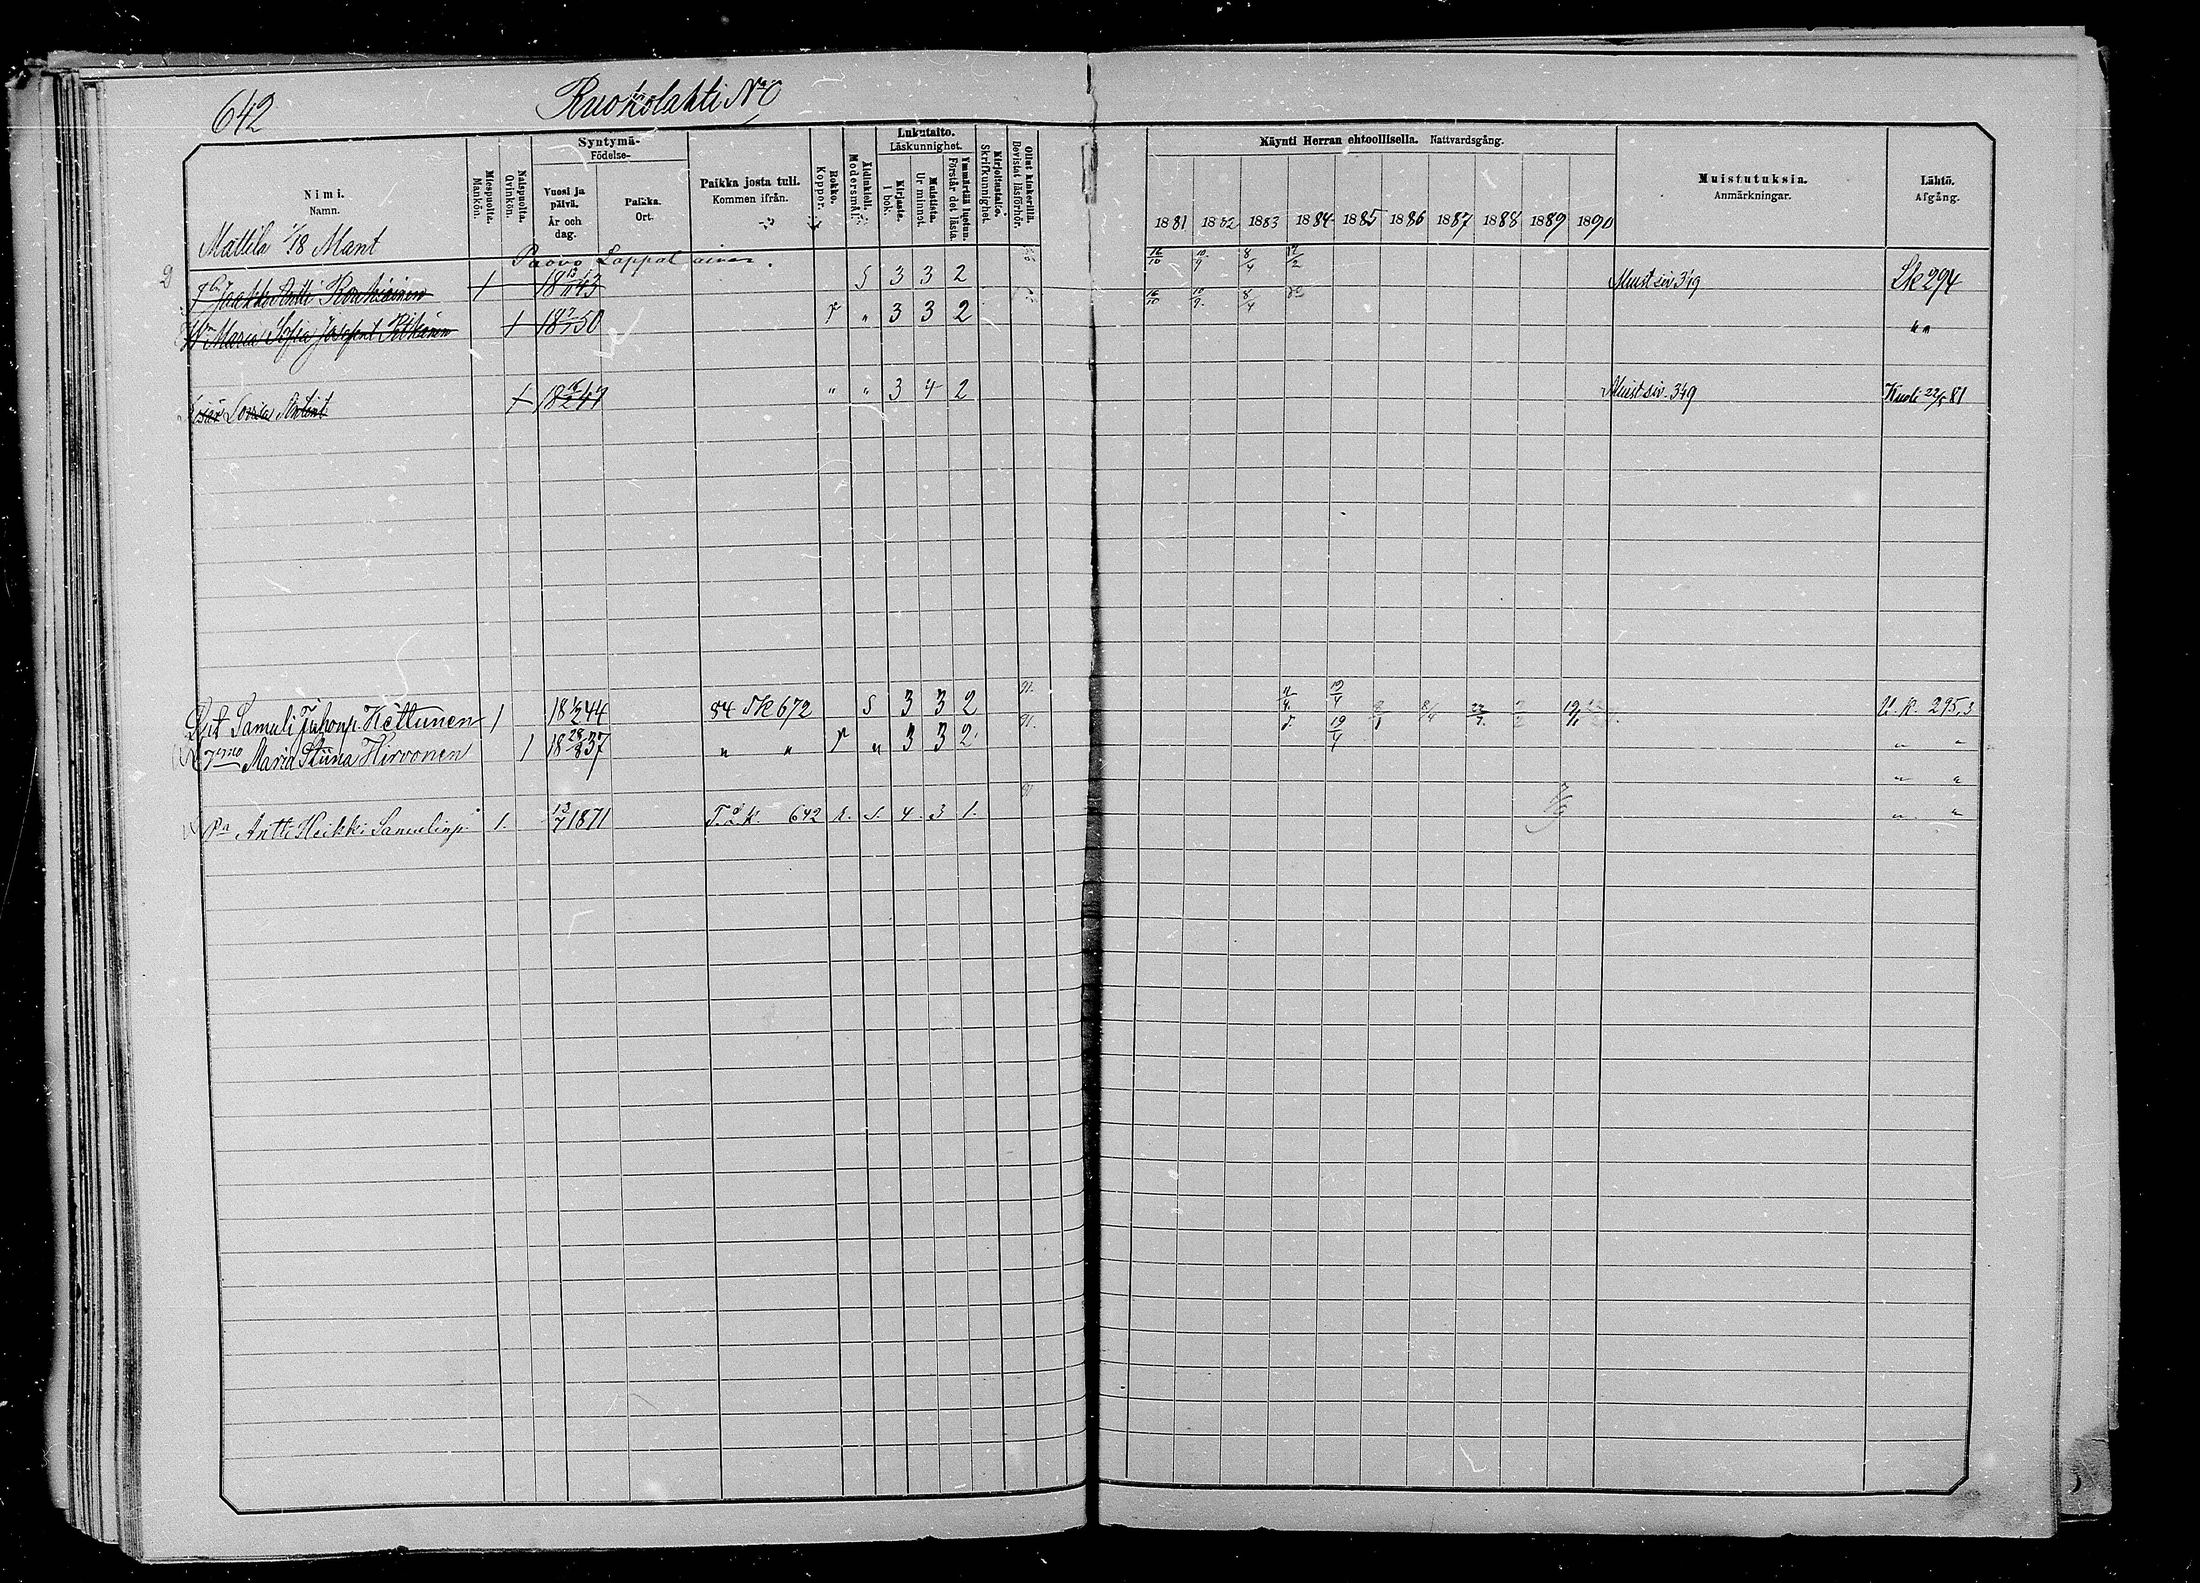 642
Ruokolahti No
Nimi.
Namn.
Miespuolta.
Mankön.
Naispuolta.
Qvinkön.
Syntymä-
Födelse-
Vuosi ja päivä.
År och dag.
Paikka.
Ort.
Paikka josta tuli.
Kommen ifrån.
Rokko.
Koppor.
Äidinkieli.
Modersmål.
Lukutaito.
Läskunnighet.
Kirjasta.
I bok.
Muistista.
Ur minnet.
Ymmärtää luetun.
Förstår det lästa.
Kirjoitustaito.
Skrifkunnighet.
Ollut kinkerillä.
Bevistat läsförhör.
Käynti Herran ehtoollisella. Nattvardsgång.
1881 1882 1883 1884 1885 1886 1887 1888 1889 1890
Muistutuksia.
Anmärkningar.
Lähtö.
Afgång.
Mattila 1/18 Mant
Paavo Lappalainen.
Jaakko Antti 1 18 43 S 3 3 2 16/10 10/9 8/4 Muist siv 349 Sk 294
Maria Sofia 1 18 50 r " 3 3 2 16/10 10/9 8/4 " "
1 18 47 " " 3 4 2 Muist siv. 349 Kuoli 22/5 81
Samuli Juhonp. Kettunen 1 18 44 84 Sk 672 S 3 3 2 19/4 U. K. 295,3
Maria Stiina Hirvonen 1 18 28/8 37 " " r " 3 3 2 19/4 " "
" "
Antti Heikki Samulinp. 1. 13/7 1871 642 r. s. 4. 3 1. " "